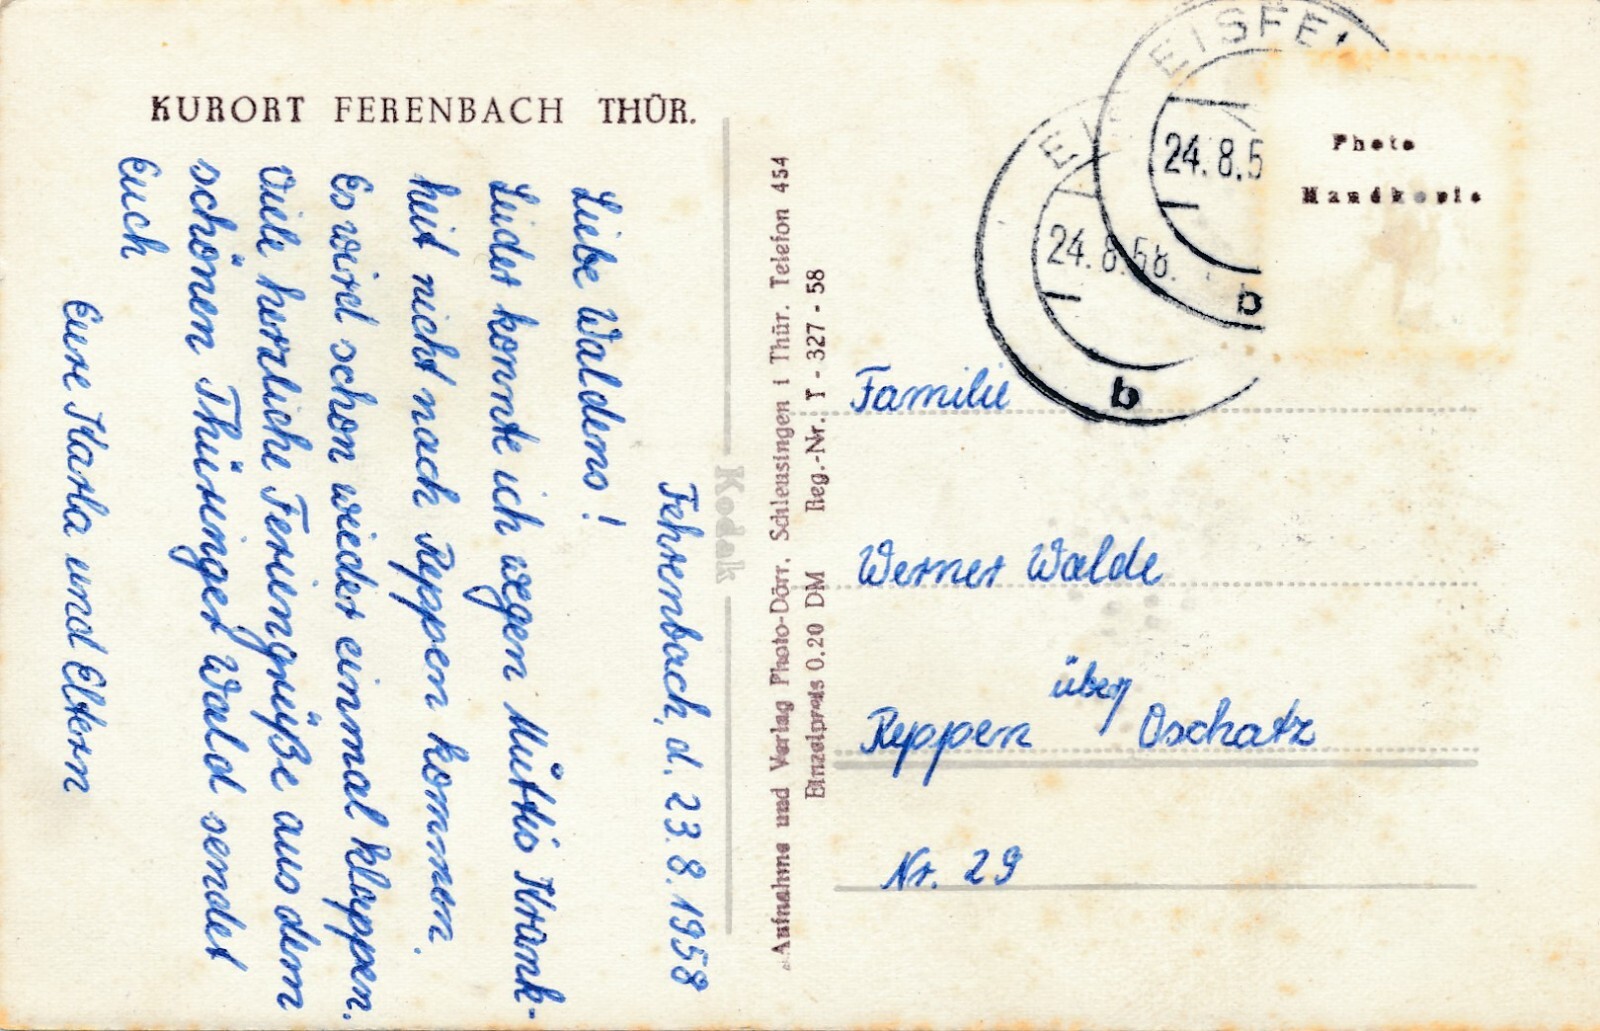 KURORT FERENBACH THÜR.
Fehrenbach, d. 23.8.1958
Liebe Waldens!
Leider konnte ich wegen Muttis Krank-
heit nicht nach Reppen kommen.
Es wird schon wieder einmal klappen.
Viele herzliche Feriengrüße aus dem
schönen Thüringer Wald sendet
Euch
Eure Karla und Eltern
Kodak
Aufnahme und Verlag Photo-Dörr. Schleusingen i Thür. Telefon 454
Einzelpreis 0.20 DM Reg.-Nr. T - 327 - 58
EISFE
24.8.5
b
24.8.58.
b
Photo
Handkopie
Familie
Werner Walde
Reppen über Oschatz
Nr. 29